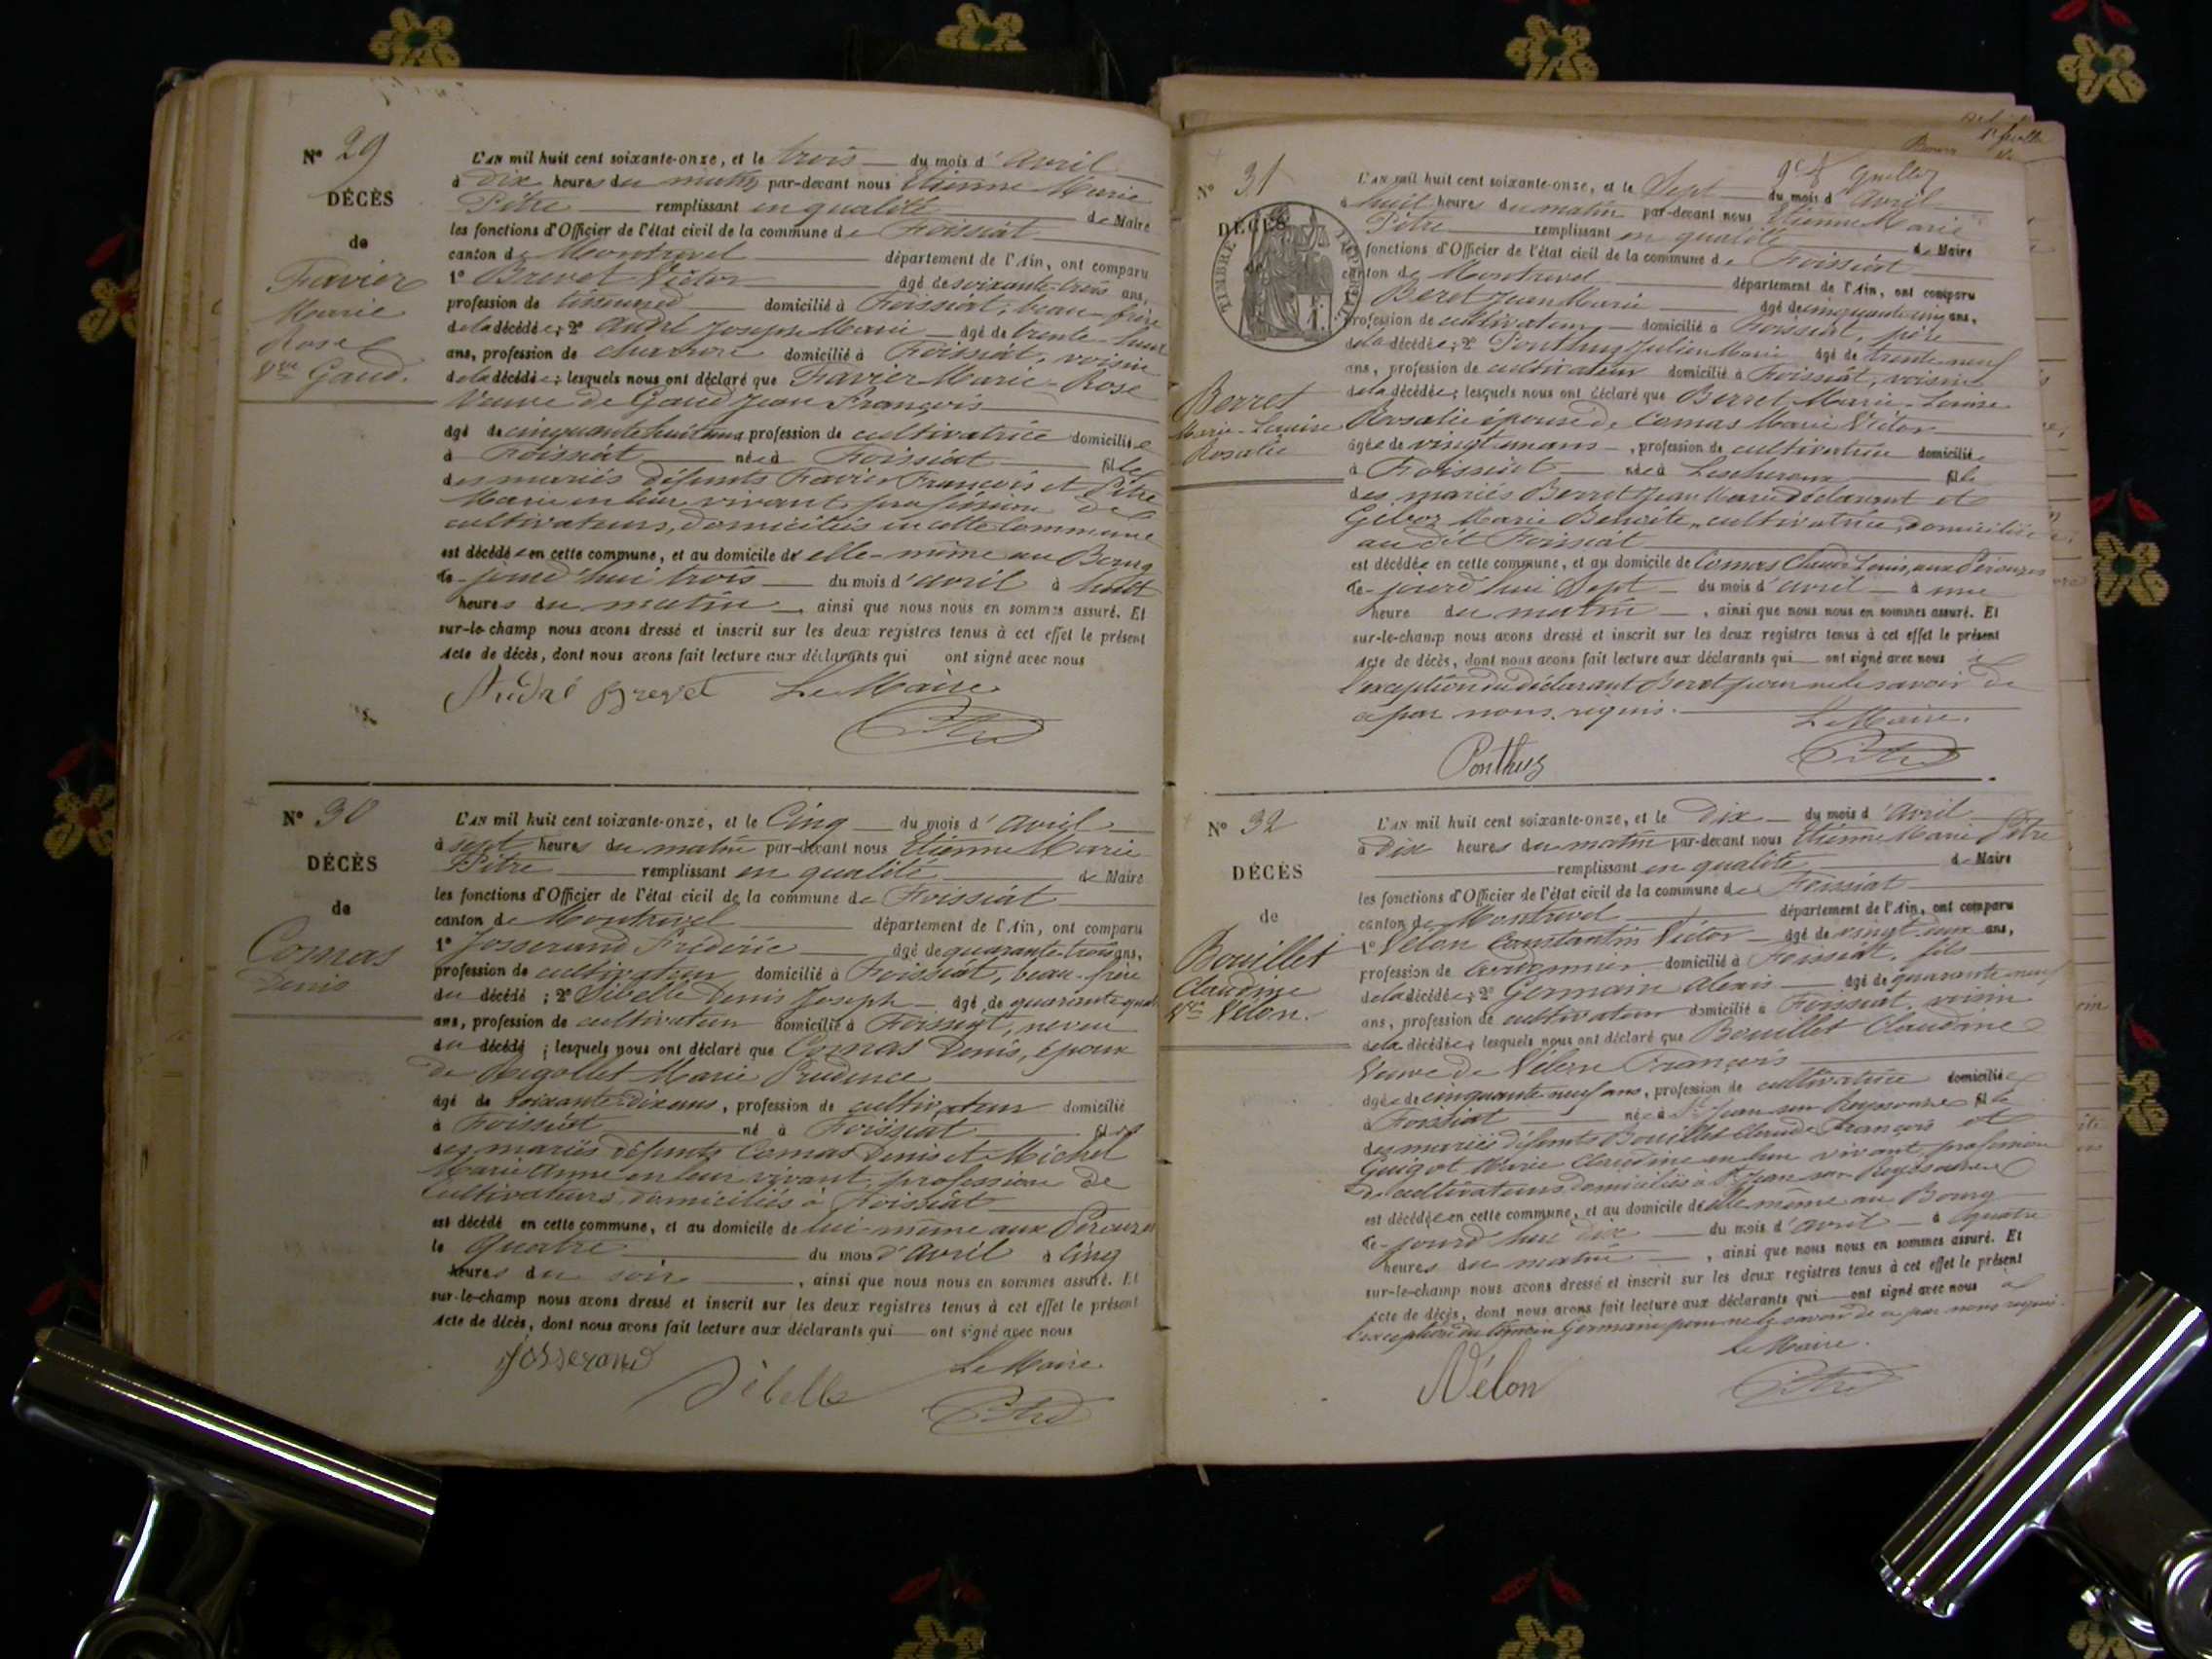 N° 29
DÉCÈS
de
Favier
Marie
Rose
Vve Gaud.
L'AN mil huit cent soixante-onze, et le trois du mois d'avril
à Dix heures du matin par-devant nous Etienne Marie
Pitre remplissant en qualité de Maire
les fonctions d'Officier de l'état civil de la commune de Foissiat
canton de Montrevel département de l'Ain, ont comparu
1° Brevet Victor âgé de soixante-trois ans,
profession de tisserand domicilié à Foissiat, beau-frère
de la décédée; 2° André Joseph Marie âgé de trente-huit
ans, profession de domicilié à Foissiat, voisin
de la décédée; lesquels nous ont déclaré que Favier Marie-Rose
Veuve de Gaud Jean François
âgé de cinquante huit ans profession de cultivatrice domiciliée
à Foissiat née à Foissiat fille
des mariés défunts Favier François et Pitre
Marie en leur vivant profession de
cultivateurs, domiciliés en cette Commune
est décédée en cette commune, et au domicile de elle-même au Bourg
ce-jourd'hui trois du mois d'avril à huit
heures du matin, ainsi que nous nous en sommes assuré. Et
sur-le-champ nous avons dressé et inscrit sur les deux registres tenus à cet effet le présent
Acte de décès, dont nous avons fait lecture aux déclarants qui ont signé avec nous
André Brevet Le Maire
Pitre
N° 30
DÉCÈS
de
Comas
Denis
L'AN mil huit cent soixante-onze, et le Cinq du mois d'avril
à sept heures du matin par-devant nous Etienne Marie
Pitre remplissant en qualité de Maire
les fonctions d'Officier de l'état civil de la commune de Foissiat
canton de Montrevel département de l'Ain, ont comparu
1° Josserand Frédéric âgé de quarante-trois ans,
profession de cultivateur domicilié à Foissiat, beau-frère
du décédé; 2° Sibelle Denis Joseph âgé de quarante quatre
ans, profession de cultivateur domicilié à Foissiat, neveu
du décédé; lesquels nous ont déclaré que Comas Denis, époux
de Rigollet Marie Prudence
âgé de soixante dix ans, profession de cultivateur domicilié
à Foissiat né à Foissiat fils
des mariés défunts Comas Denis et Michel
Marie Anne en leur vivant, profession de
Cultivateurs domiciliés à Foissiat
est décédé en cette commune, et au domicile de lui-même aux Perouzes
le Quatre du mois d'avril à Cinq
heures du soir, ainsi que nous nous en sommes assuré. Et
sur-le-champ nous avons dressé et inscrit sur les deux registres tenus à cet effet le présent
Acte de décès, dont nous avons fait lecture aux déclarants qui ont signé avec nous
Josserand Sibelle Le Maire
Pitre
N° 31
DÉCÈS
TIMBRE IMPÉRIAL
Berret
Marie-Louise
Rosalie
L'AN mil huit cent soixante-onze, et le Sept du mois d'avril
à huit heures du matin par-devant nous Etienne Marie
Pitre remplissant en qualité de Maire
les fonctions d'Officier de l'état civil de la commune de Foissiat
canton de Montrevel département de l'Ain, ont comparu
Beret Jean Marie âgé de cinquante cinq ans,
profession de cultivateur domicilié à Foissiat, père
de la décédée; 2° Ponthus Julien Marie âgé de trente neuf
ans, profession de cultivateur domicilié à Foissiat, voisin
de la décédée; lesquels nous ont déclaré que Berret Marie-Louise
Rosalie épouse de Comas Marie Victor
âgée de vingt un ans, profession de cultivatrice domiciliée
à Foissiat née à Lescheroux fille
des mariés Berret Jean Marie déclarant et
Marie Benoite, cultivatrice, domiciliée
au dit Foissiat
est décédée en cette commune, et au domicile de Comas Claude Louis, aux Perouzes
ce-jourd'hui Sept du mois d'avril à une
heure du matin, ainsi que nous nous en sommes assuré. Et
sur-le-champ nous avons dressé et inscrit sur les deux registres tenus à cet effet le présent
Acte de décès, dont nous avons fait lecture aux déclarants qui ont signé avec nous à
l'exception du déclarant Beret pour ne le savoir de
ce par nous requis.
Le Maire.
Ponthus Pitre
N° 32
DÉCÈS
de
Bouillet
Claudine
Vve Vélon.
L'AN mil huit cent soixante-onze, et le Dix du mois d'avril
à Dix heures du matin par-devant nous Etienne Marie Pitre
remplissant en qualité de Maire
les fonctions d'Officier de l'état civil de la commune de Foissiat
canton de Montrevel département de l'Ain, ont comparu
1° Vélon Constantin Victor âgé de vingt-deux ans,
profession de cordonnier domicilié à Foissiat, fils
de la décédée; 2° Germain Alexis âgé de quarante neuf
ans, profession de cultivateur domicilié à Foissiat, voisin
de la décédée; lesquels nous ont déclaré que Bouillet Claudine
Veuve de Vélon François
âgée de cinquante neuf ans, profession de cultivatrice domiciliée
à Foissiat née à St Jean sur Reyssouze fille
des mariés défunts Bouillet Claude François et
Guigot Marie Claudine en leur vivant profession
de cultivateurs domiciliés à St Jean sur Reyssouze
est décédée en cette commune, et au domicile de elle même au Bourg
ce-jourd'hui dix du mois d'avril à quatre
heures du matin, ainsi que nous nous en sommes assuré. Et
sur-le-champ nous avons dressé et inscrit sur les deux registres tenus à cet effet le présent
Acte de décès, dont nous avons fait lecture aux déclarants qui ont signé avec nous à
l'exception du témoin Germain pour ne le savoir de ce par nous requis.
Le Maire.
Vélon Pitre